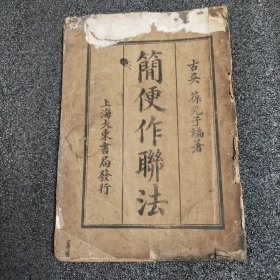 古吳 葆光子編著
簡便作聯法
上海大東書局發行